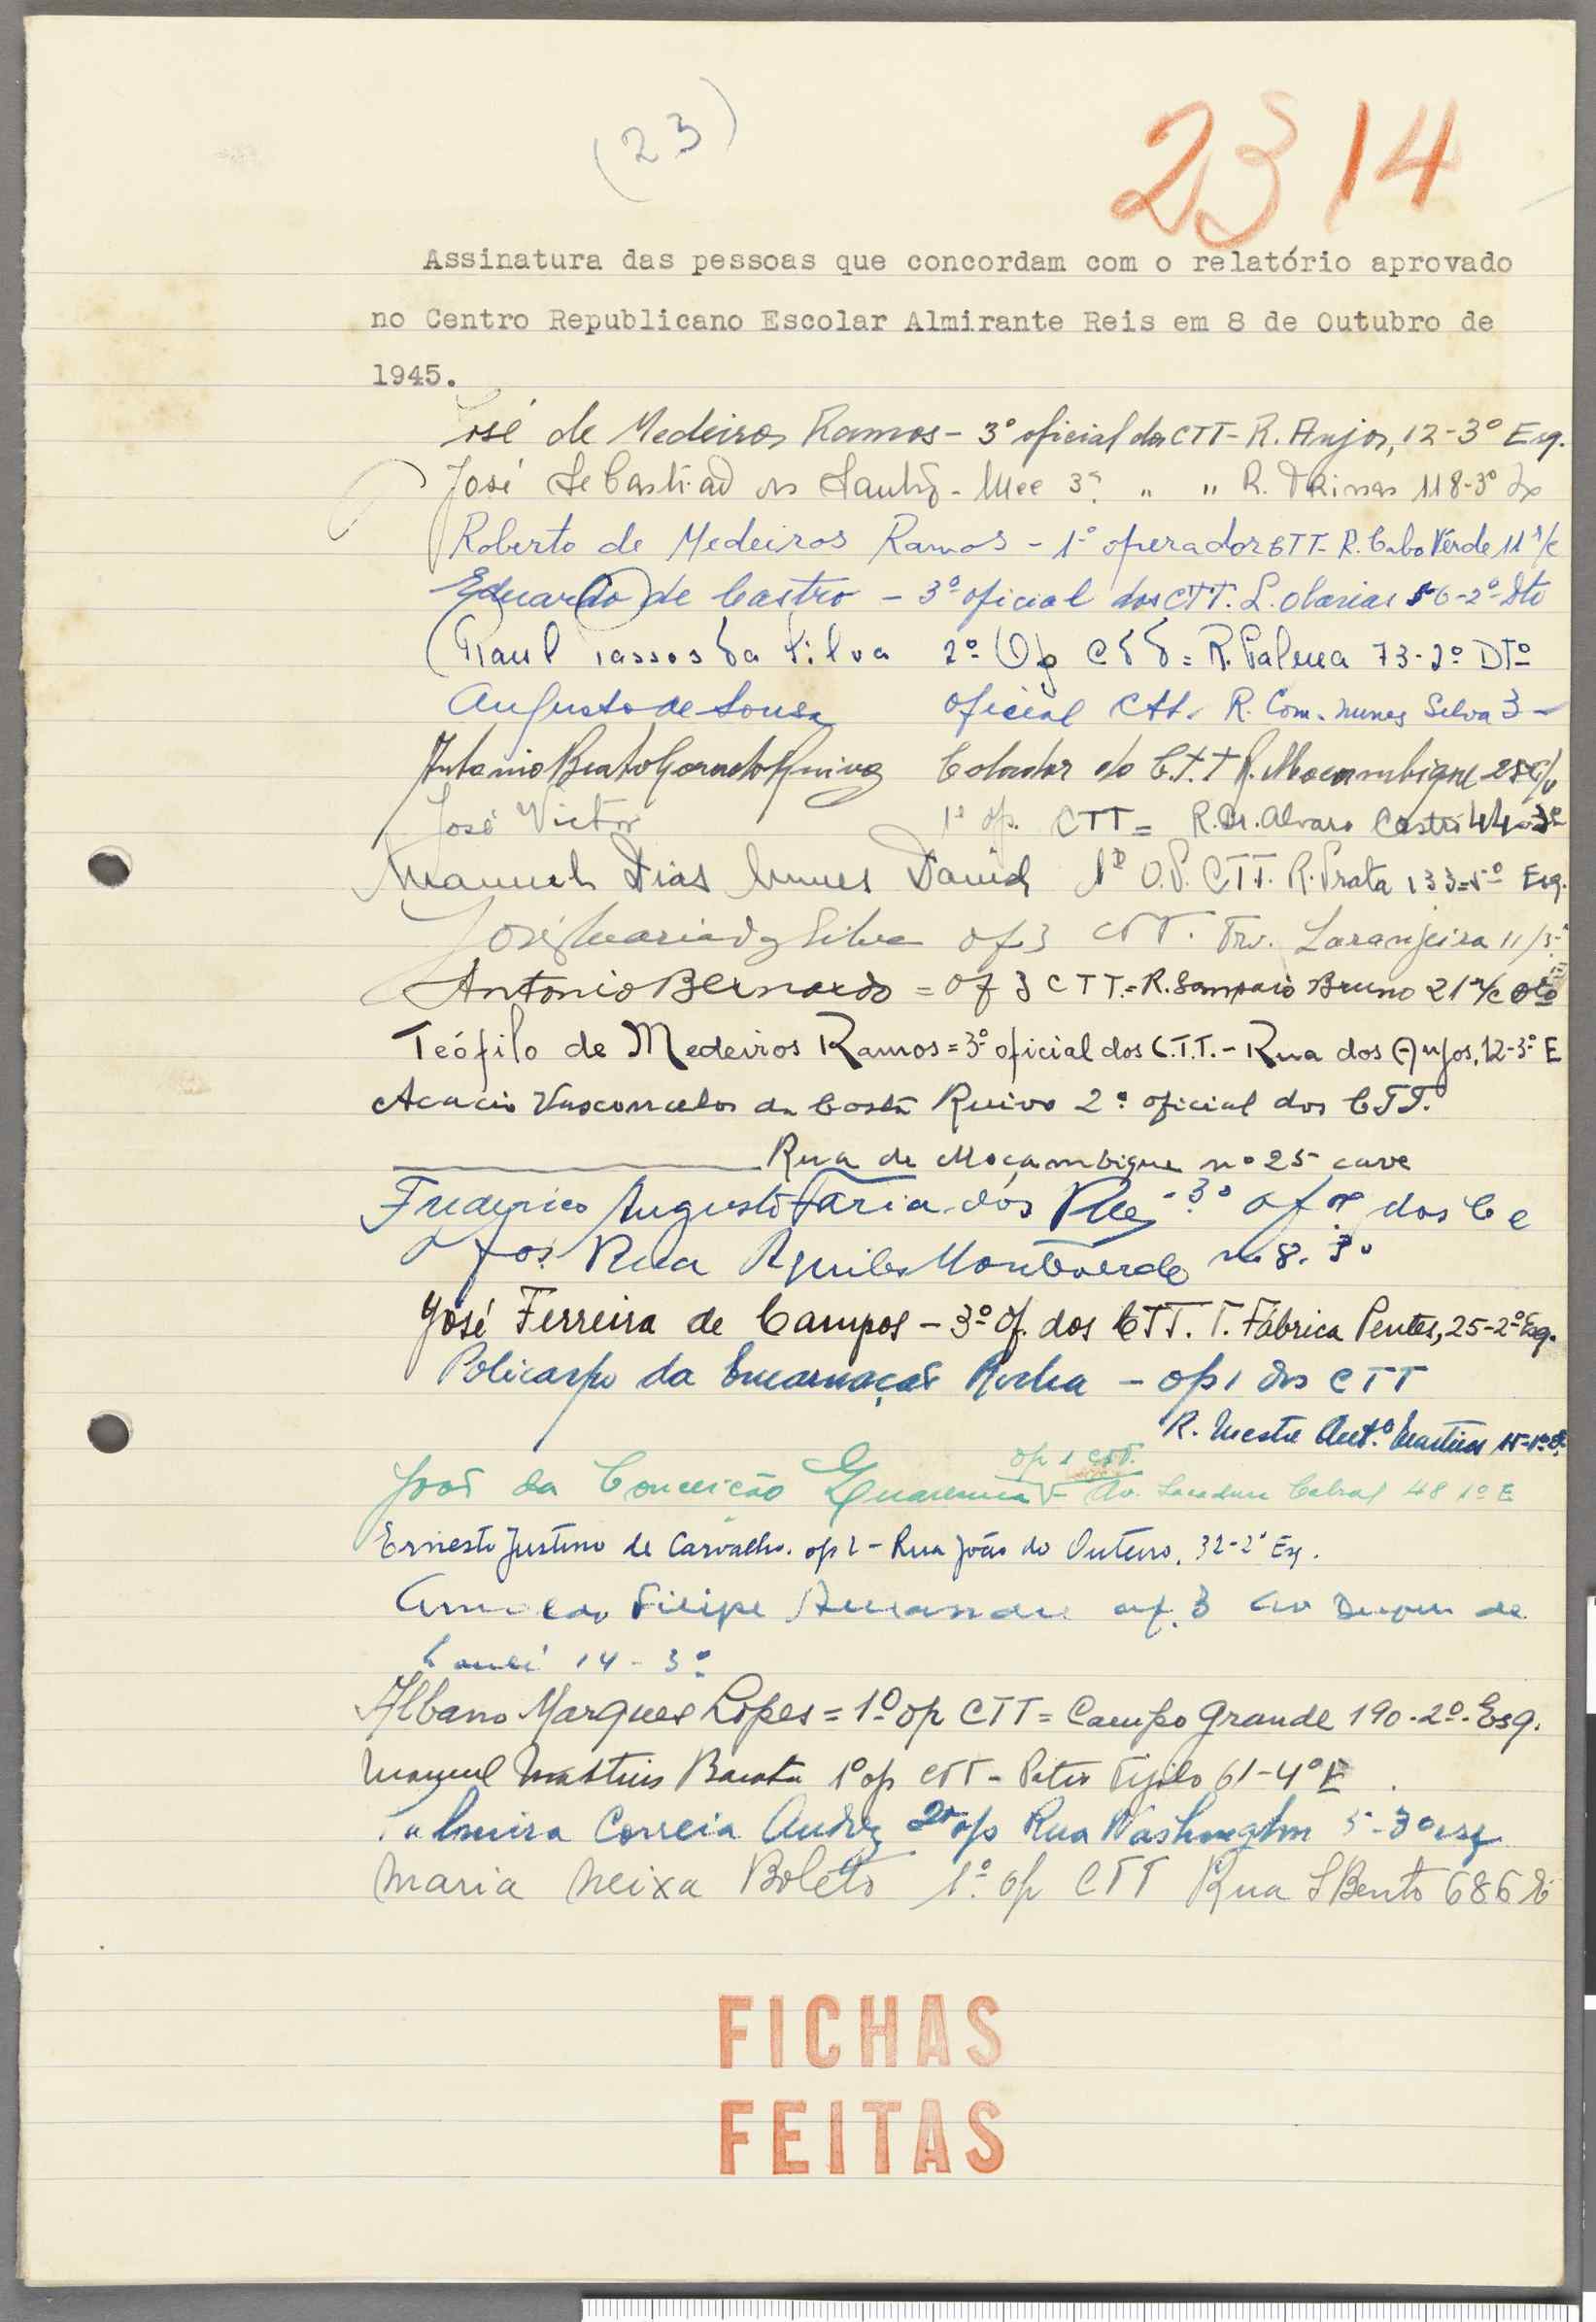 (23)
2314
Assinatura das pessoas que concordam com o relatório aprovado
no Centro Republicano Escolar Almirante Reis em 8 de Outubro de
1945.
José de Medeiros Ramos - 3º oficial dos CTT - R. Anjos, 12-3º Esq.
José Sebastião dos Santos - 3º " " R. Trinas 118-3º
Roberto de Medeiros Ramos - 1º operador CTT - R. Cabo Verde 11 r/c
Eduardo de Castro - 3º oficial dos CTT. L. Olarias 56-2º Dto
Raul Passos da Silva 2º Of CTT = R. Palma 73-2º DTº
Augusto de Sousa oficial Ctt. R. Com. Nunes Silva 3
Antonio C.T.T R. Moçambique 25 c/v
José Victor 1º op. CTT = R. Dr. Alvaro Castro 44-3º
Manuel Dias Nunes David 1º O.P. CTT. R. Prata 133=5º Esq.
José Maria da Silva Of 3 CTT. Trv. Laranjeira 11/3º
Antonio Bernardo = Of 3 CTT. = R. Sampaio Bruno 21 r/c Dto
Teófilo de Medeiros Ramos = 3º oficial dos C.T.T. - Rua dos Anjos, 12-3º E
Acacio Vasconcelos da Costa Ruivo 2º oficial dos CTT.
Rua de Moçambique nº 25 cave
Frederico Augusto Faria dos Reis - 3º of dos C e
Rua Aquiles Monteverde nº 8. 3º
José Ferreira de Campos - 3º Of. dos CTT. T. Fábrica Pentes, 25-2º Esq.
Policarpo da Encarnação Rocha - op 1 dos CTT
R. Mestre Antº Martins 15-1º
op 1 CTT.
João da Conceição Quaresma - Av. Sacadura Cabral 48 1º E
Ernesto Justino de Carvalho. op 2 - Rua João do Outeiro, 32-2º Esq.
Filipe of. 3 Av Duque de
14 - 3º
Albano Marques Lopes = 1º op CTT = Campo Grande 190-2º-Esq.
Manuel Martins Barata 1º op CTT - Patio Tijolo 61-4º E
Palmira Correia 2º op Rua Washington 5-3º esq
Maria Neixa Boleto 1º op CTT Rua S Bento 686
FICHAS
FEITAS